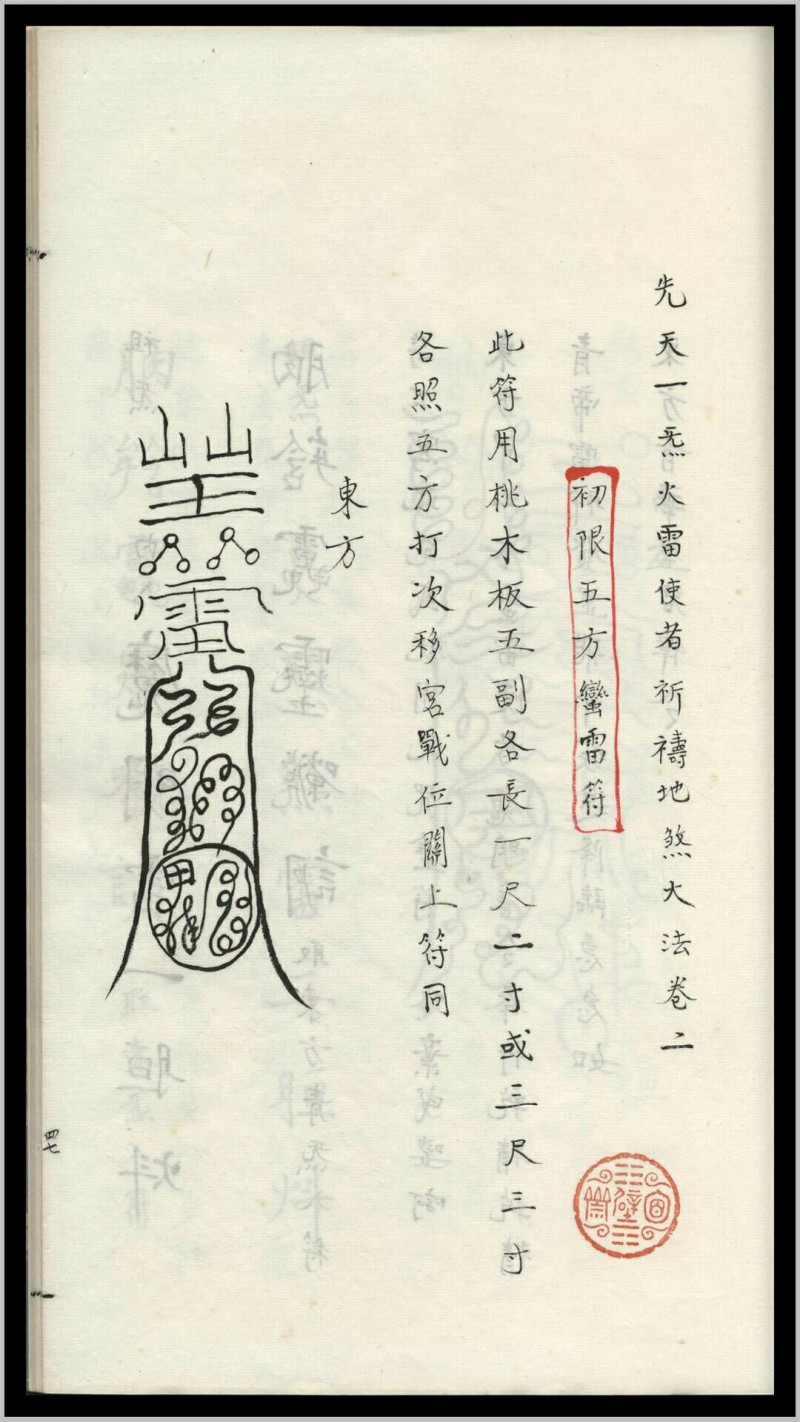 先天一炁火雷使者祈禱地煞大法卷二
初限五方蠻雷符
此符用桃木板五副各長一尺二寸或三尺三寸
各照五方打次移宮戰位關上符同
東方
四七